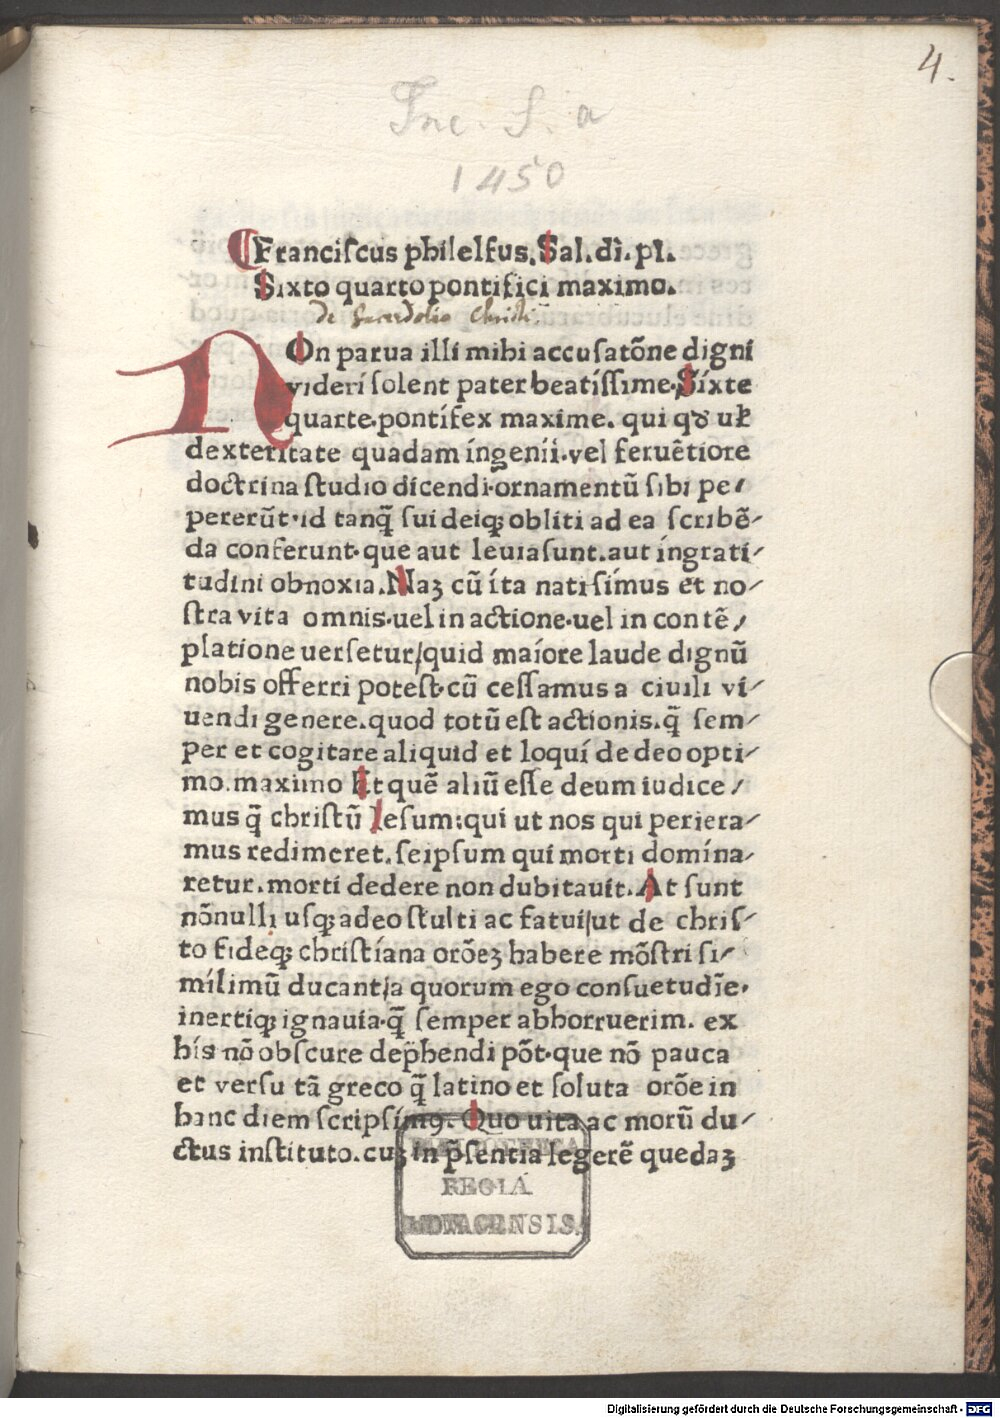 4.
Inc. S. a
1450
Franciſcus philelfus. Sal. dī. pl.
Sixto quarto pontifici maximo.
de Sacerdotio Christi.
NOn parua illi mihi accuſatōne digni
videri ſolent pater beatiſſime. Sixte
quarte. pontifex maxime. qui
dexteritate quadam ingenii. vel feruētiore
doctrina ſtudio dicendi. ornamentū ſibi pe-
pererūt. id tanq̄ ſui deiq; obliti ad ea ſcribē-
da conferunt. que aut leuia ſunt. aut ingrati-
tudini obnoxia. Naʒ cū ita nati ſimus et no-
ſtra vita omnis. uel in actione. uel in contē-
platione uerſetur/ quid maiore laude dignū
nobis offerri poteſt. cū ceſſamus a ciuili vi-
uendi genere. quod totū eſt actionis. q̄ ſem-
per et cogitare aliquid et loqui de deo opti-
mo. maximo Et quē aliū eſſe deum iudice-
mus q̄ chriſtū Ieſum: qui ut nos qui periera-
mus redimeret. ſeipſum qui morti domina-
retur. morti dedere non dubitauit. At ſunt
nōnulli uſq; adeo ſtulti ac fatui/ ut de chriſ-
to fideq; chriſtiana orōeʒ habere mōſtri ſi-
milimū ducant/ a quorum ego conſuetudīe.
inertiq; ignauia. q̄ ſemper abhorruerim. ex
his nō obſcure dep̄hendi pōt. que nō pauca
et verſu tā greco q̄ latino et ſoluta orōe in
hanc diem ſcripſimꝰ. Quo uita ac morū du-
ctus inſtituto. cuʒ in p̄ſentia legerē quedaʒ
BIBLIOTHECA
REGIA
MONACENSIS.
Digitalisierung gefördert durch die Deutsche Forschungsgemeinschaft - DFG